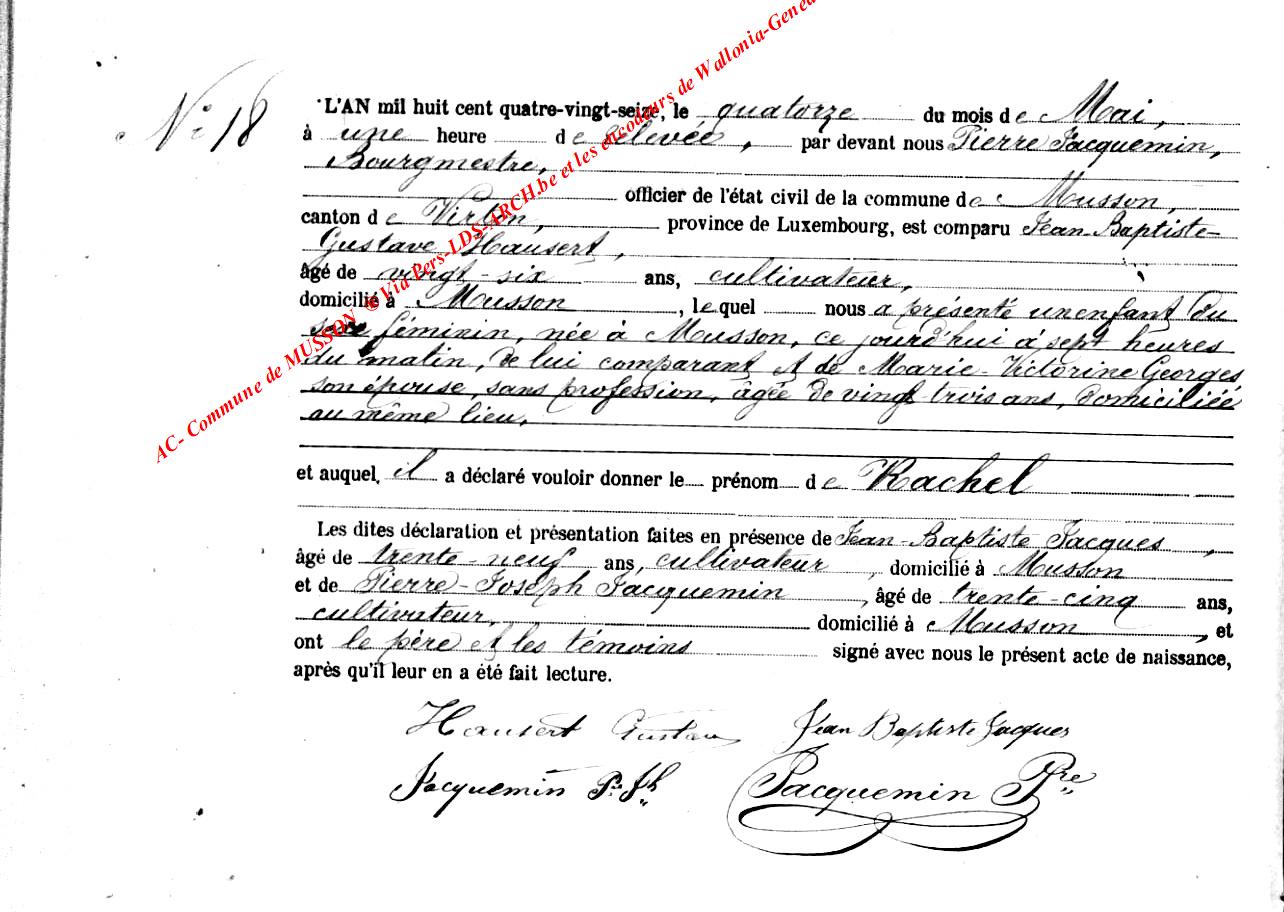 AC- Commune de MUSSON © Via Pers-LDS-ARCH.be et les encodeurs de Wallonia-Genea
No 18
L'AN mil huit cent quatre-vingt-seize, le quatorze du mois de Mai,
à une heure de relevée, par devant nous Pierre Jacquemin,
Bourgmestre,
officier de l'état civil de la commune de Musson,
canton de Virton, province de Luxembourg, est comparu Jean-Baptiste-
Gustave Hausert,
âgé de vingt-six ans, cultivateur,
domicilié à Musson, lequel nous a présenté un enfant du
sexe féminin, née à Musson, ce jourd'hui à sept heures
du matin, de lui comparant et de Marie-Victorine Georges
son épouse, sans profession, âgée de vingt-trois ans, domiciliée
au même lieu.
et auquel, il a déclaré vouloir donner le prénom de Rachel
Les dites déclaration et présentation faites en présence de Jean-Baptiste Jacques,
âgé de trente-neuf ans, cultivateur, domicilié à Musson
et de Pierre-Joseph Jacquemin, âgé de trente-cinq ans,
cultivateur, domicilié à Musson, et
ont le père et les témoins signé avec nous le présent acte de naissance,
après qu'il leur en a été fait lecture.
Hausert Gustave Jean Baptiste Jacques
Jacquemin Pre Jh Jacquemin Pre